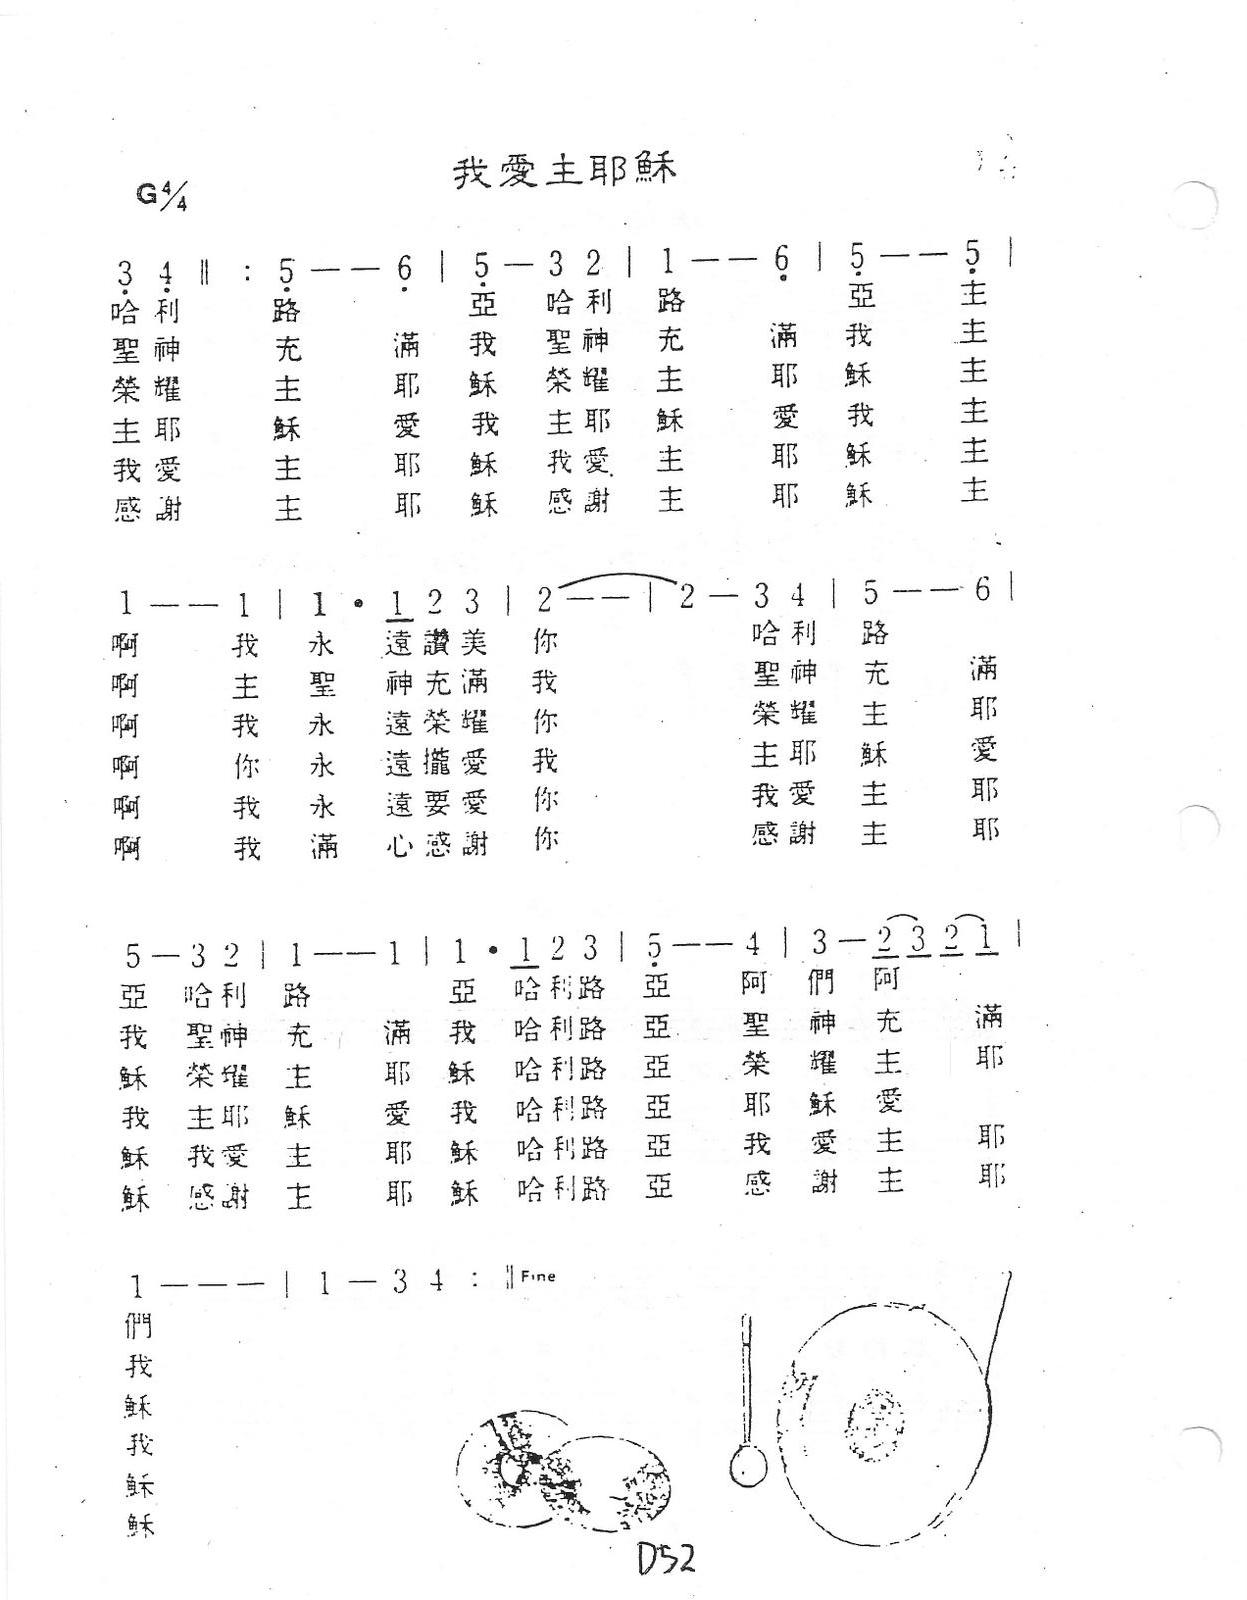 我愛主耶穌
G4/4
3 4 ‖ : 5 — — 6 | 5 — 3 2 | 1 — — 6 | 5 — — 5 |
哈利 路 亞 哈利 路 亞 主
聖神 充 滿 我 聖神 充 滿 我 主
榮耀 主 耶 穌 榮耀 主 耶 穌 主
主耶 穌 愛 我 主耶 穌 愛 我 主
我愛 主 耶 穌 我愛 主 耶 穌 主
感謝 主 耶 穌 感謝 主 耶 穌 主
1 — — 1 | 1 • 1 2 3 | 2 — — | 2 — 3 4 | 5 — — 6 |
啊 我 永 遠讚美 你 哈利 路
啊 主 聖 神充滿 我 聖神 充 滿
啊 我 永 遠榮耀 你 榮耀 主 耶
啊 你 永 遠攏愛 我 主耶 穌 愛
啊 我 永 遠要愛 你 我愛 主 耶
啊 我 滿 心感謝 你 感謝 主 耶
5 — 3 2 | 1 — — 1 | 1 • 1 2 3 | 5 — — 4 | 3 — 2 3 2 1 |
亞 哈利 路 亞 哈利路 亞 阿 們 阿
我 聖神 充 滿 我 哈利路 亞 聖 神 充 滿
穌 榮耀 主 耶 穌 哈利路 亞 榮 耀 主 耶
我 主耶 穌 愛 我 哈利路 亞 耶 穌 愛
穌 我愛 主 耶 穌 哈利路 亞 我 愛 主 耶
穌 感謝 主 耶 穌 哈利路 亞 感 謝 主 耶
1 — — — | 1 — 3 4 : ‖ Fine
們
我
穌
我
穌
穌
D52